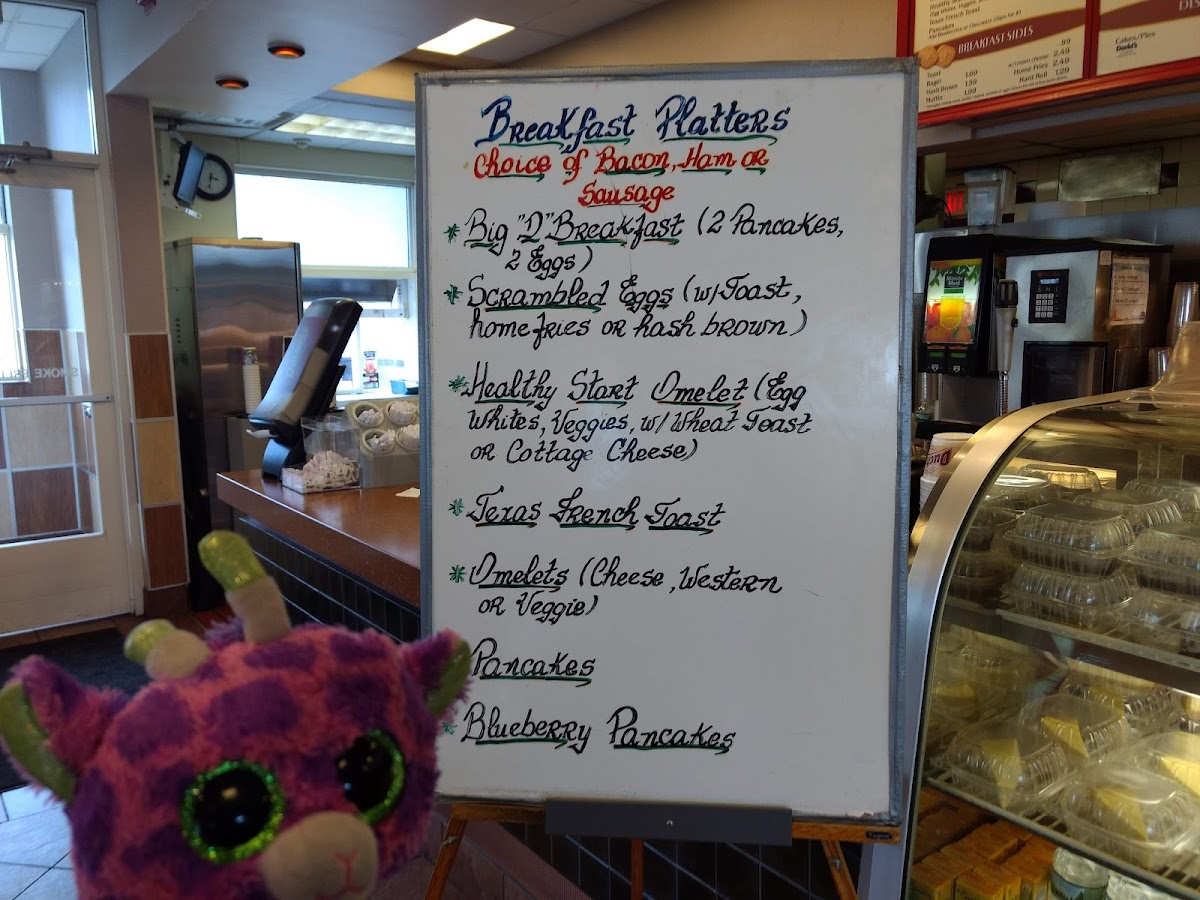 Breakfast Platters
Choice of Bacon, Ham or
Sausage
* Big "D" Breakfast (2 Pancakes,
2 Eggs)
* Scrambled Eggs (w/Toast,
home fries or hash brown)
* Healthy Start Omelet (Egg
Whites, Veggies, w/ Wheat Toast
or Cottage Cheese)
* Texas French Toast
* Omelets (Cheese, Western
or Veggie)
Pancakes
* Blueberry Pancakes
Texas French Toast
Pancakes
BREAKFAST SIDES
.99
Toast 1.69
Home Fries 2.49
Bagel
Hard Roll 1.29
Hash Brown 1.59
Muffin 1.99
Cakes/Pies
David's
Minute Maid
SMOKE